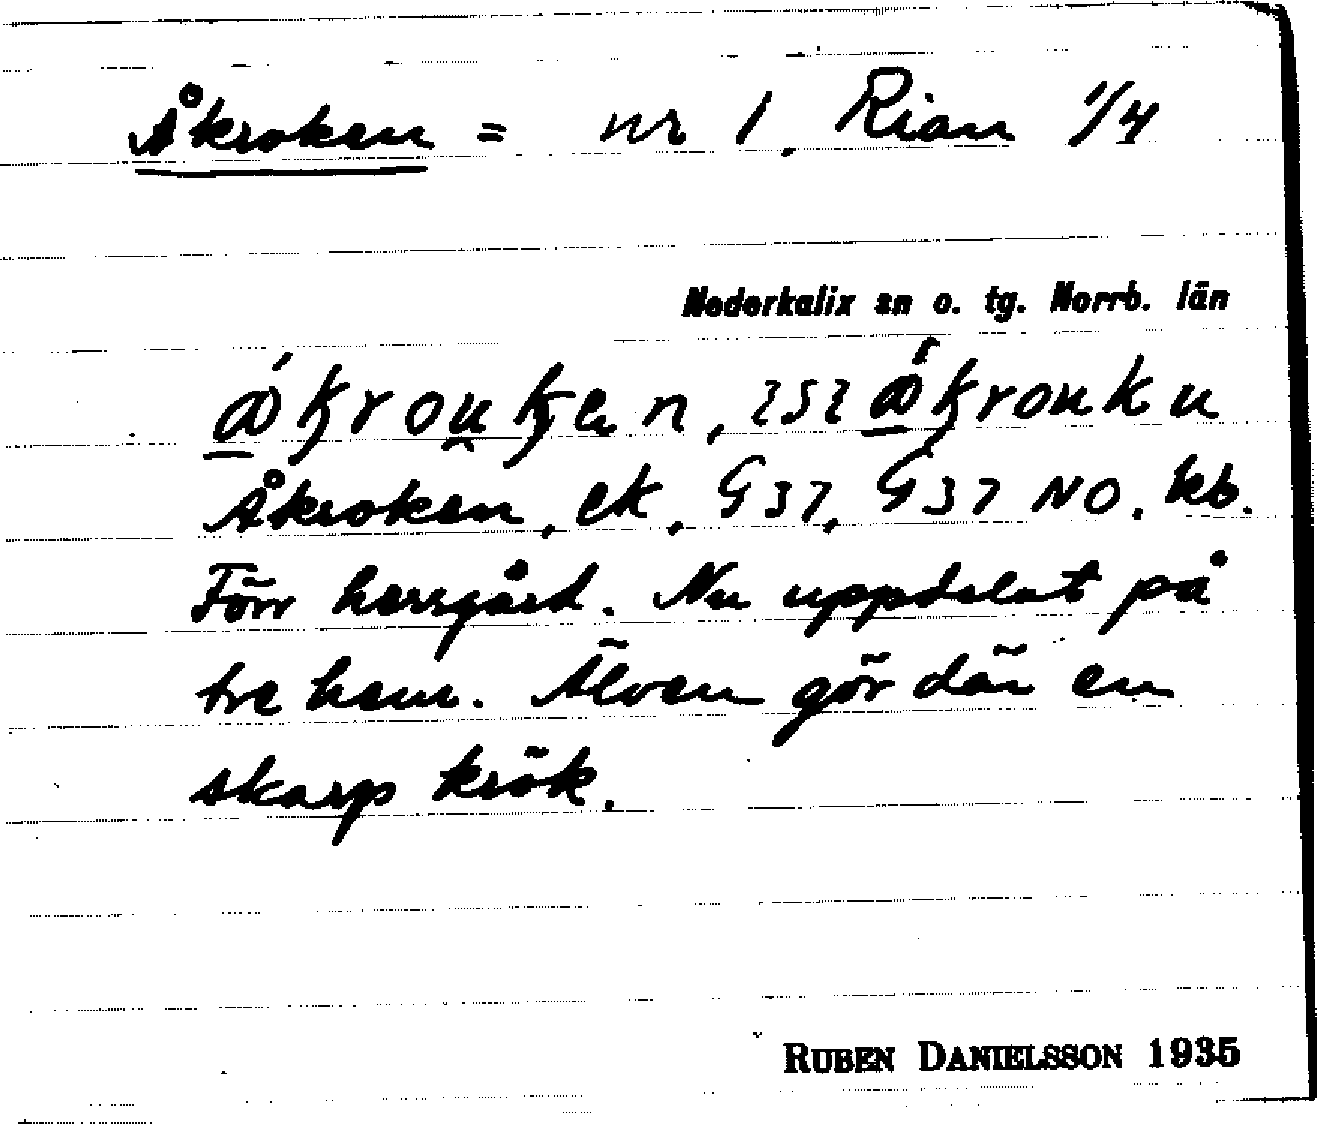 Åkroken = nr 1, Rian 1/4
Nederkalix sn o. tg. Norrb. län
Åkroken, ek, G37, G37 NO. kb.
Förr herrgård. Nu uppdelat på
tre hem. Älven gör där en
skarp krök.
RUBEN DANIELSSON 1935